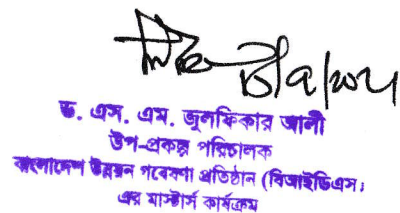 ড. এস. এম. জুলফিকার আলী
উপ-প্রকল্প পরিচালক
বাংলাদেশ উন্নয়ন গবেষণা প্রতিষ্ঠান (বিআইডিএস)
এর মাস্টার্স কার্যক্রম